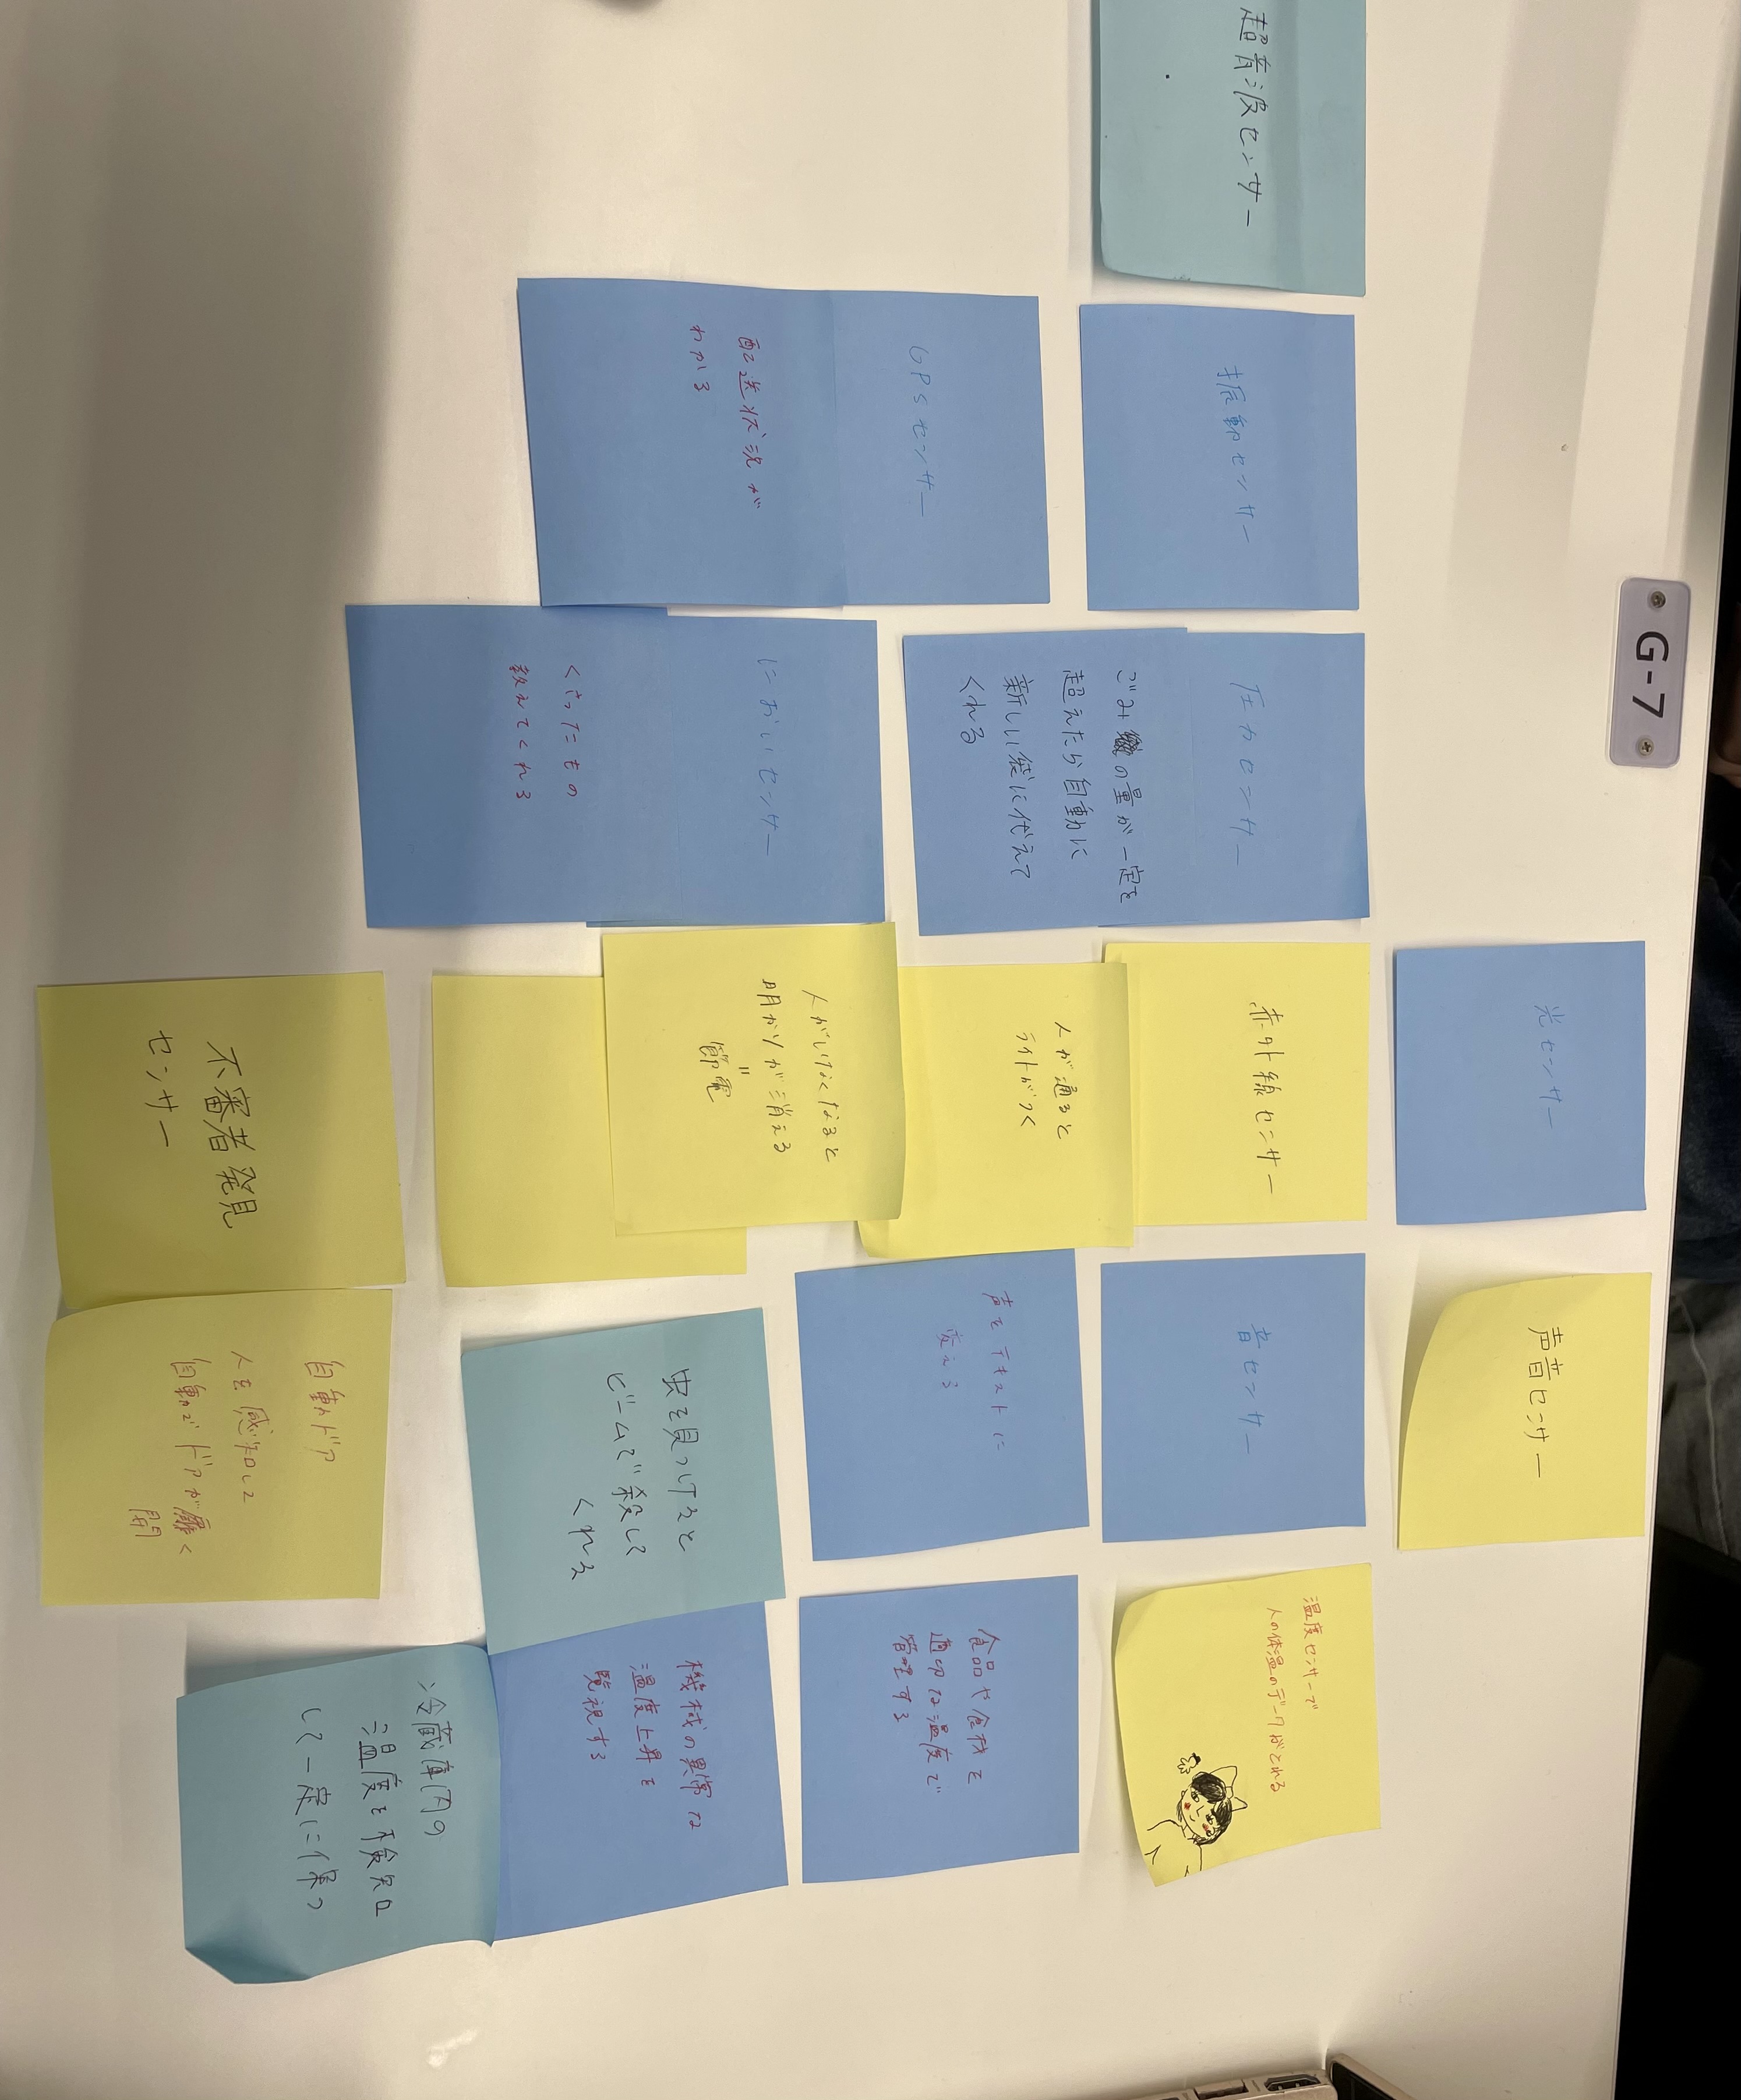 G-7
超音波センサー
振動センサー
GPSセンサー
配送状況が
わかる
圧力センサー
ごみの量が一定を
超えたら自動に
新しい袋に代えて
くれる
においセンサー
くさったもの
教えてくれる
光センサー
赤外線センサー
人が通ると
ライトがつく
人がいなくなると
明かりが消える
=
節電
不審者発見
センサー
声音センサー
音センサー
声をテキストに
変える
虫を見つけると
ビームで殺して
くれる
自動ドア
人を感知して
自動でドアが開く
温度センサーで
人の体温のデータがとれる
食品や食材を
適切な温度で
管理する
機械の異常な
温度上昇を
監視する
冷蔵庫内の
温度を検知
して一定に保つ